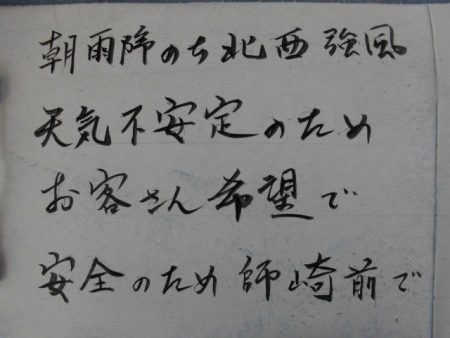 朝雨降のち北西強風
天気不安定のため
お客さん希望で
安全のため師崎前で